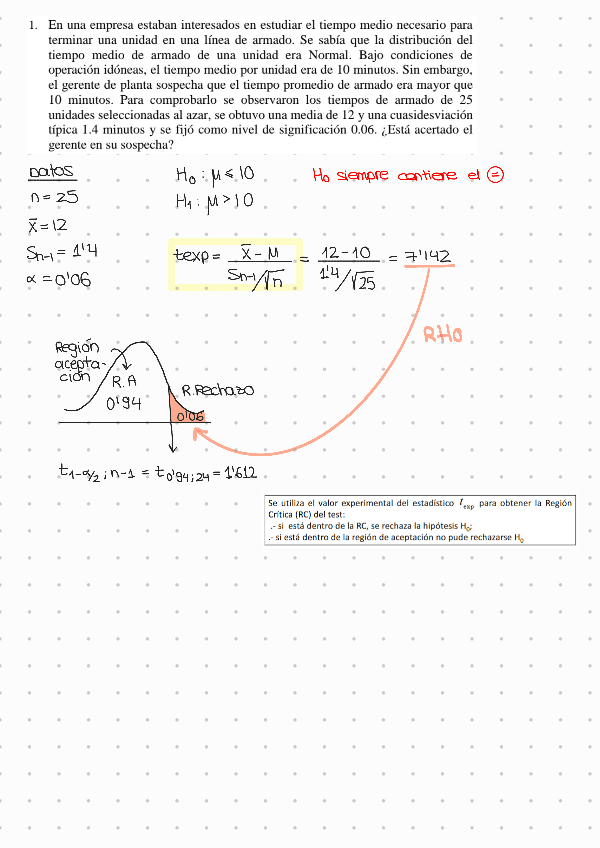 1. En una empresa estaban interesados en estudiar el tiempo medio necesario para
terminar una unidad en una línea de armado. Se sabía que la distribución del
tiempo medio de armado de una unidad era Normal. Bajo condiciones de
operación idóneas, el tiempo medio por unidad era de 10 minutos. Sin embargo,
el gerente de planta sospecha que el tiempo promedio de armado era mayor que
10 minutos. Para comprobarlo se observaron los tiempos de armado de 25
unidades seleccionadas al azar, se obtuvo una media de 12 y una cuasidesviación
típica 1.4 minutos y se fijó como nivel de significación 0.06. ¿Está acertado el
gerente en su sospecha?
Datos
n = 25
x̄ = 12
Sn-1 = 1'4
α = 0'06
H₀ : μ ≤ 10
H₁ : μ > 10
H₀ siempre contiene el =
texp = (x̄ - M) / (Sn-1/√n) = (12 - 10) / (1'4/√25) = 7'142
RH0
Región
acepta-
ción
R.A
0'94
R.Rechazo
0'06
t1-α/2 ; n-1 = t0'94 ; 24 = 1'612
Se utiliza el valor experimental del estadístico t exp para obtener la Región
Crítica (RC) del test:
.- si está dentro de la RC, se rechaza la hipótesis H₀;
.- si está dentro de la región de aceptación no pude rechazarse H₀